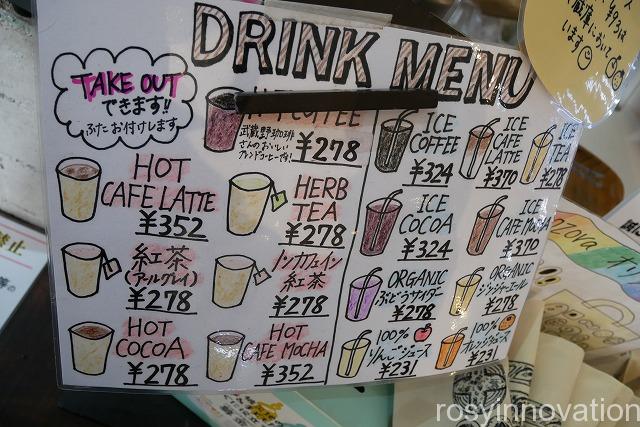 DRINK MENU
TAKE OUT
できます!!
ふたお付けします
HOT COFFEE
武蔵野珈琲
さんのおいしい
ブレンドコーヒーです!
¥278
HOT
CAFE LATTE
¥352
HERB
TEA
¥278
紅茶
(アールグレイ)
¥278
ノンカフェイン
紅茶
¥278
HOT
COCOA
¥278
HOT
CAFE MOCHA
¥352
ICE
COFFEE
¥324
ICE
CAFE
LATTE
¥370
ICE
TEA
¥278
ICE
COCOA
¥324
ICE
CAFE MOCHA
¥370
ORGANIC
ぶどうサイダー
¥278
ORGANIC
ジンジャーエール
¥278
100%
りんごジュース
¥231
100%
オレンジジュース
¥231
います
rosyinnovation